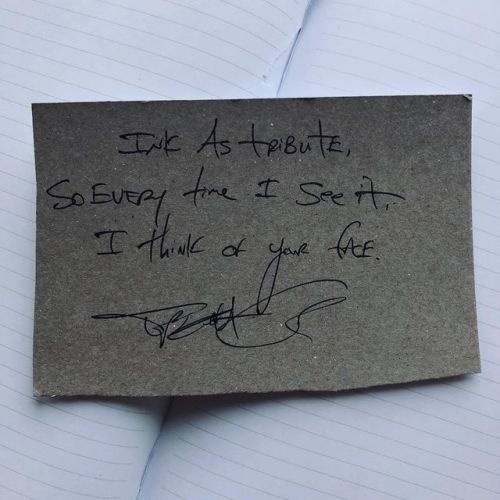 INK As tRIBUtE,
So EVERy time I See it,
I think of your fACE.